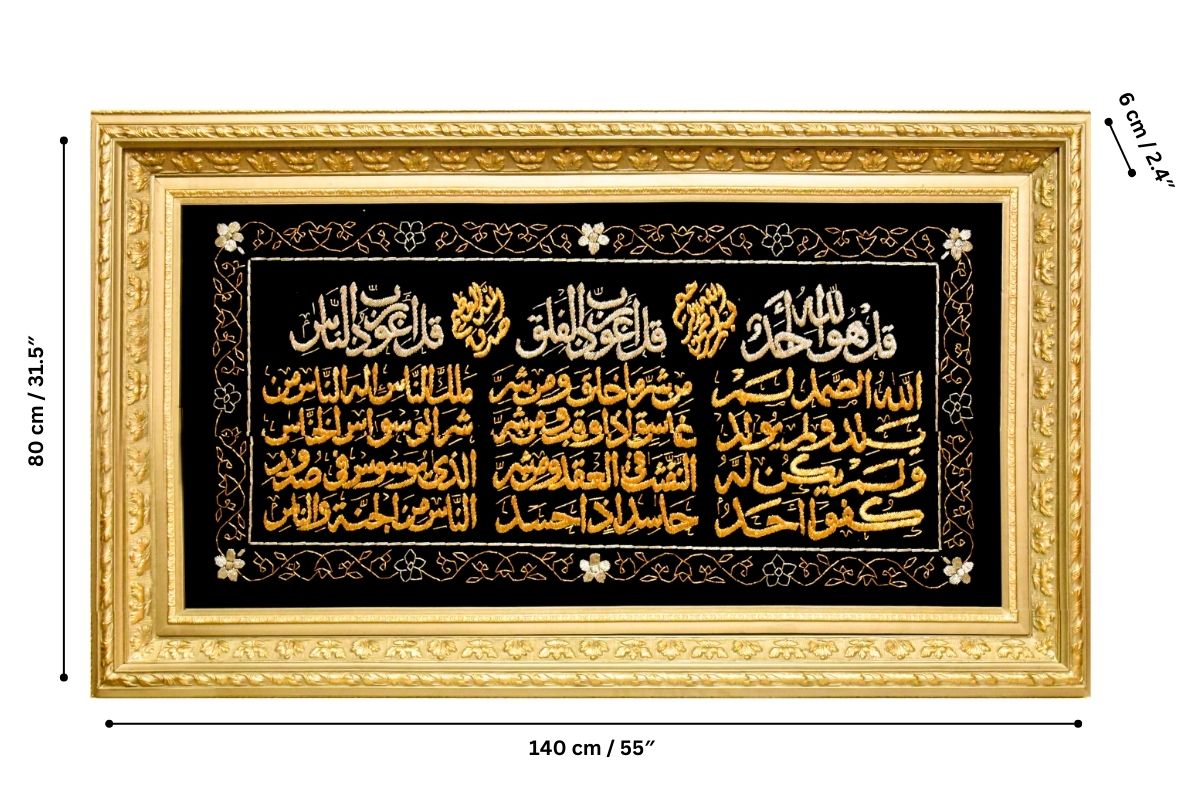 6 cm / 2.4″
80 cm / 31.5″
قل هو الله أحد
الله الصمد لم
يلد ولم يولد
ولم يكن له
كفوا أحد
بسم الله الرحمن الرحيم
قل اعوذ برب الفلق
من شر ما خلق ومن شر
غاسق اذا وقب ومن شر
النفثت في العقد ومن شر
حاسد اذا حسد
صدق الله العظيم
قل اعوذ برب الناس
ملك الناس اله الناس من
شر الوسواس الخناس
الذي يوسوس في صدور
الناس من الجنة والناس
140 cm / 55″